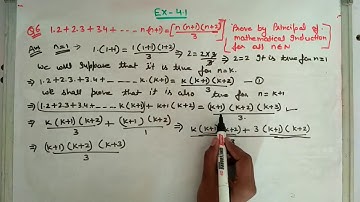 EX-4.1
Q6 1.2 + 2.3 + 3.4 + - - - - n(n+1) = [n(n+1)(n+2)/3] Prove by Principal of mathematical Induction for all n∈N
Ans n=1 1.(1+1) = 1(1+1)(1+2)/3 ⇒ 2 = 2×3/3 ⇒ 2=2 It is true for n=1
we will suppose that it is true for n=k.
1.2 + 2.3 + 3.4 + - - - - - k.(k+1) = k(k+1)(k+2)/3 - ①
we shall prove that it is also true for n=k+1
(1.2 + 2.3 + 3.4 + - - - - k(k+1) + k+1(k+2) = (k+1)(k+2)(k+3)/3
⇒ k(k+1)(k+2)/3 + (k+1)(k+2)/1 ⇒ k(k+1)(k+2) + 3(k+1)(k+2)
⇒ (k+1)(k+2)(k+3)/3